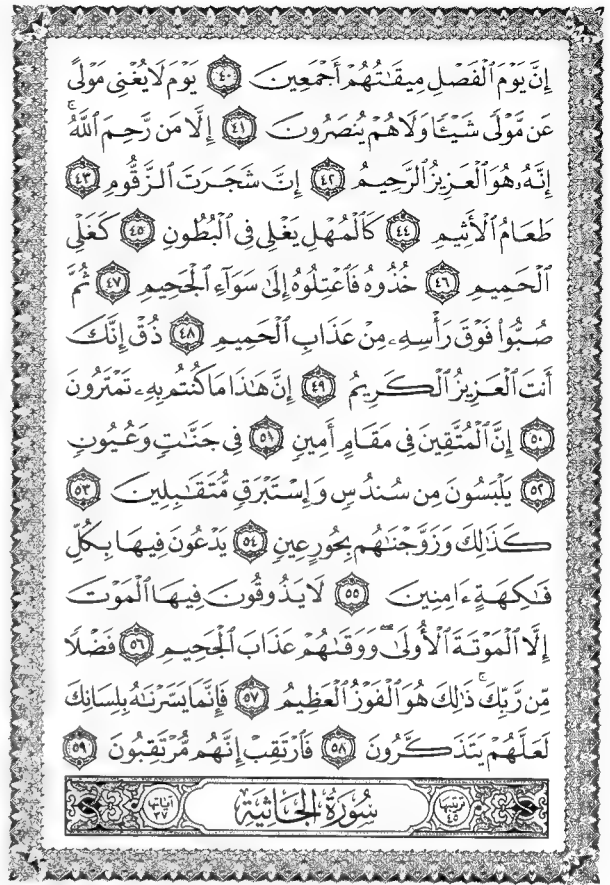 إِنَّ يَوْمَ ٱلْفَصْلِ مِيقَٰتُهُمْ أَجْمَعِينَ ٤٠ يَوْمَ لَا يُغْنِى مَوْلًى
عَن مَّوْلًى شَيْـًٔا وَلَا هُمْ يُنصَرُونَ ٤١ إِلَّا مَن رَّحِمَ ٱللَّهُ ۚ
إِنَّهُۥ هُوَ ٱلْعَزِيزُ ٱلرَّحِيمُ ٤٢ إِنَّ شَجَرَتَ ٱلزَّقُّومِ ٤٣
طَعَامُ ٱلْأَثِيمِ ٤٤ كَٱلْمُهْلِ يَغْلِى فِى ٱلْبُطُونِ ٤٥ كَغَلْىِ
ٱلْحَمِيمِ ٤٦ خُذُوهُ فَٱعْتِلُوهُ إِلَىٰ سَوَآءِ ٱلْجَحِيمِ ٤٧ ثُمَّ
صُبُّوا۟ فَوْقَ رَأْسِهِۦ مِنْ عَذَابِ ٱلْحَمِيمِ ٤٨ ذُقْ إِنَّكَ
أَنتَ ٱلْعَزِيزُ ٱلْكَرِيمُ ٤٩ إِنَّ هَٰذَا مَا كُنتُم بِهِۦ تَمْتَرُونَ
٥٠ إِنَّ ٱلْمُتَّقِينَ فِى مَقَامٍ أَمِينٍ ٥١ فِى جَنَّٰتٍ وَعُيُونٍ
٥٢ يَلْبَسُونَ مِن سُندُسٍ وَإِسْتَبْرَقٍ مُّتَقَٰبِلِينَ ٥٣
كَذَٰلِكَ وَزَوَّجْنَٰهُم بِحُورٍ عِينٍ ٥٤ يَدْعُونَ فِيهَا بِكُلِّ
فَٰكِهَةٍ ءَامِنِينَ ٥٥ لَا يَذُوقُونَ فِيهَا ٱلْمَوْتَ
إِلَّا ٱلْمَوْتَةَ ٱلْأُولَىٰ ۖ وَوَقَىٰهُمْ عَذَابَ ٱلْجَحِيمِ ٥٦ فَضْلًا
مِّن رَّبِّكَ ۚ ذَٰلِكَ هُوَ ٱلْفَوْزُ ٱلْعَظِيمُ ٥٧ فَإِنَّمَا يَسَّرْنَٰهُ بِلِسَانِكَ
لَعَلَّهُمْ يَتَذَكَّرُونَ ٥٨ فَٱرْتَقِبْ إِنَّهُم مُّرْتَقِبُونَ ٥٩
ترتيبها ٤٥ سُورَةُ الجَاثِيَة آياتها ٣٧